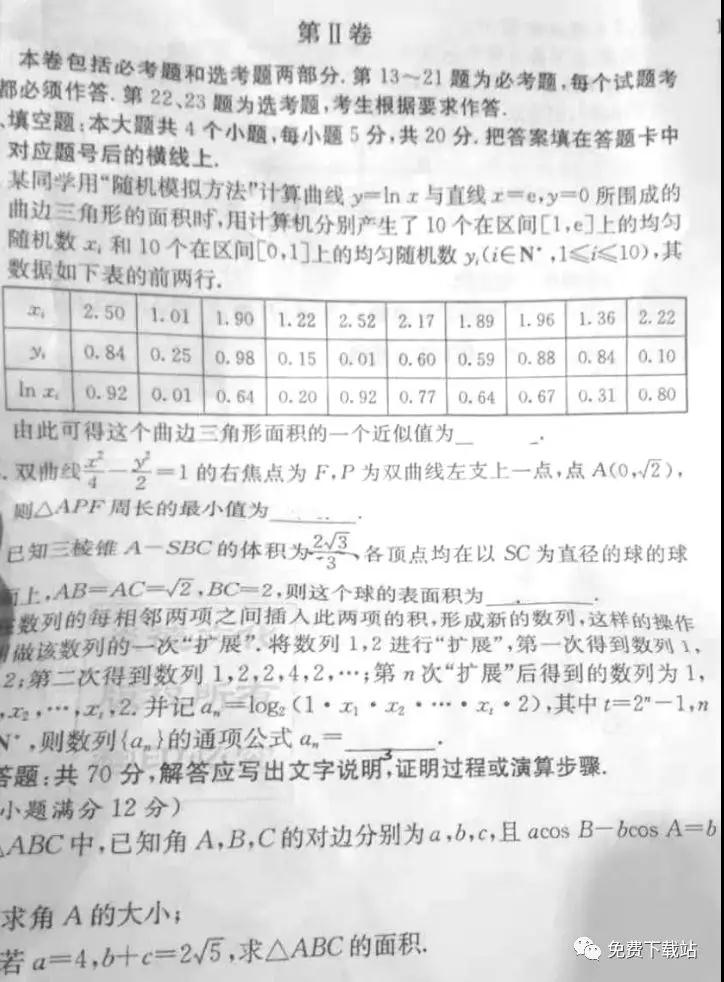 第Ⅱ卷
本卷包括必考题和选考题两部分.第13～21题为必考题,每个试题考
都必须作答.第22、23题为选考题,考生根据要求作答.
、填空题:本大题共4个小题,每小题5分,共20分.把答案填在答题卡中
对应题号后的横线上.
某同学用“随机模拟方法”计算曲线y=ln x与直线x=e,y=0所围成的
曲边三角形的面积时,用计算机分别产生了10个在区间[1,e]上的均匀
随机数xᵢ和10个在区间[0,1]上的均匀随机数yᵢ(i∈N*,1≤i≤10),其
数据如下表的前两行.
xᵢ 2.50 1.01 1.90 1.22 2.52 2.17 1.89 1.96 1.36 2.22
yᵢ 0.84 0.25 0.98 0.15 0.01 0.60 0.59 0.88 0.84 0.10
ln xᵢ 0.92 0.01 0.64 0.20 0.92 0.77 0.64 0.67 0.31 0.80
由此可得这个曲边三角形面积的一个近似值为__.
.双曲线x²/4-y²/2=1的右焦点为F,P为双曲线左支上一点,点A(0,√2),
则△APF周长的最小值为____.
已知三棱锥A-SBC的体积为2√3/3,各顶点均在以SC为直径的球的球
面上,AB=AC=√2,BC=2,则这个球的表面积为____.
在数列的每相邻两项之间插入此两项的积,形成新的数列,这样的操作
叫做该数列的一次“扩展”.将数列1,2进行“扩展”,第一次得到数列1,
2;第二次得到数列1,2,2,4,2,…;第n次“扩展”后得到的数列为1,
,x₂,…,xₜ,2.并记aₙ=log₂(1·x₁·x₂·…·xₜ·2),其中t=2ⁿ-1,n
N*,则数列{aₙ}的通项公式aₙ=____.
答题:共70分,解答应写出文字说明,证明过程或演算步骤.
小题满分12分)
△ABC中,已知角A,B,C的对边分别为a,b,c,且acos B-bcos A=b
求角A的大小;
若a=4,b+c=2√5,求△ABC的面积.
免费下载站